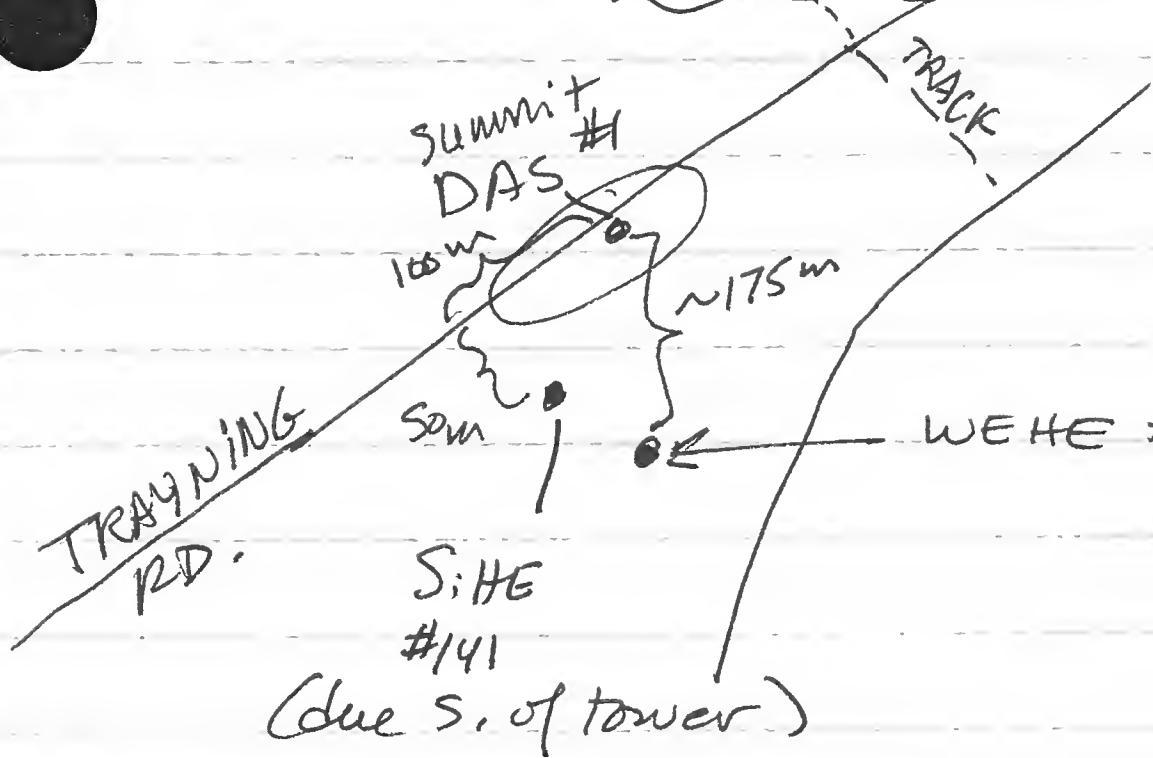 TRACK
summit
#1
DAS
100m
~175m
50m
WEHE
TRAYNING
RD.
SiHE
#141
(due S. of tower)